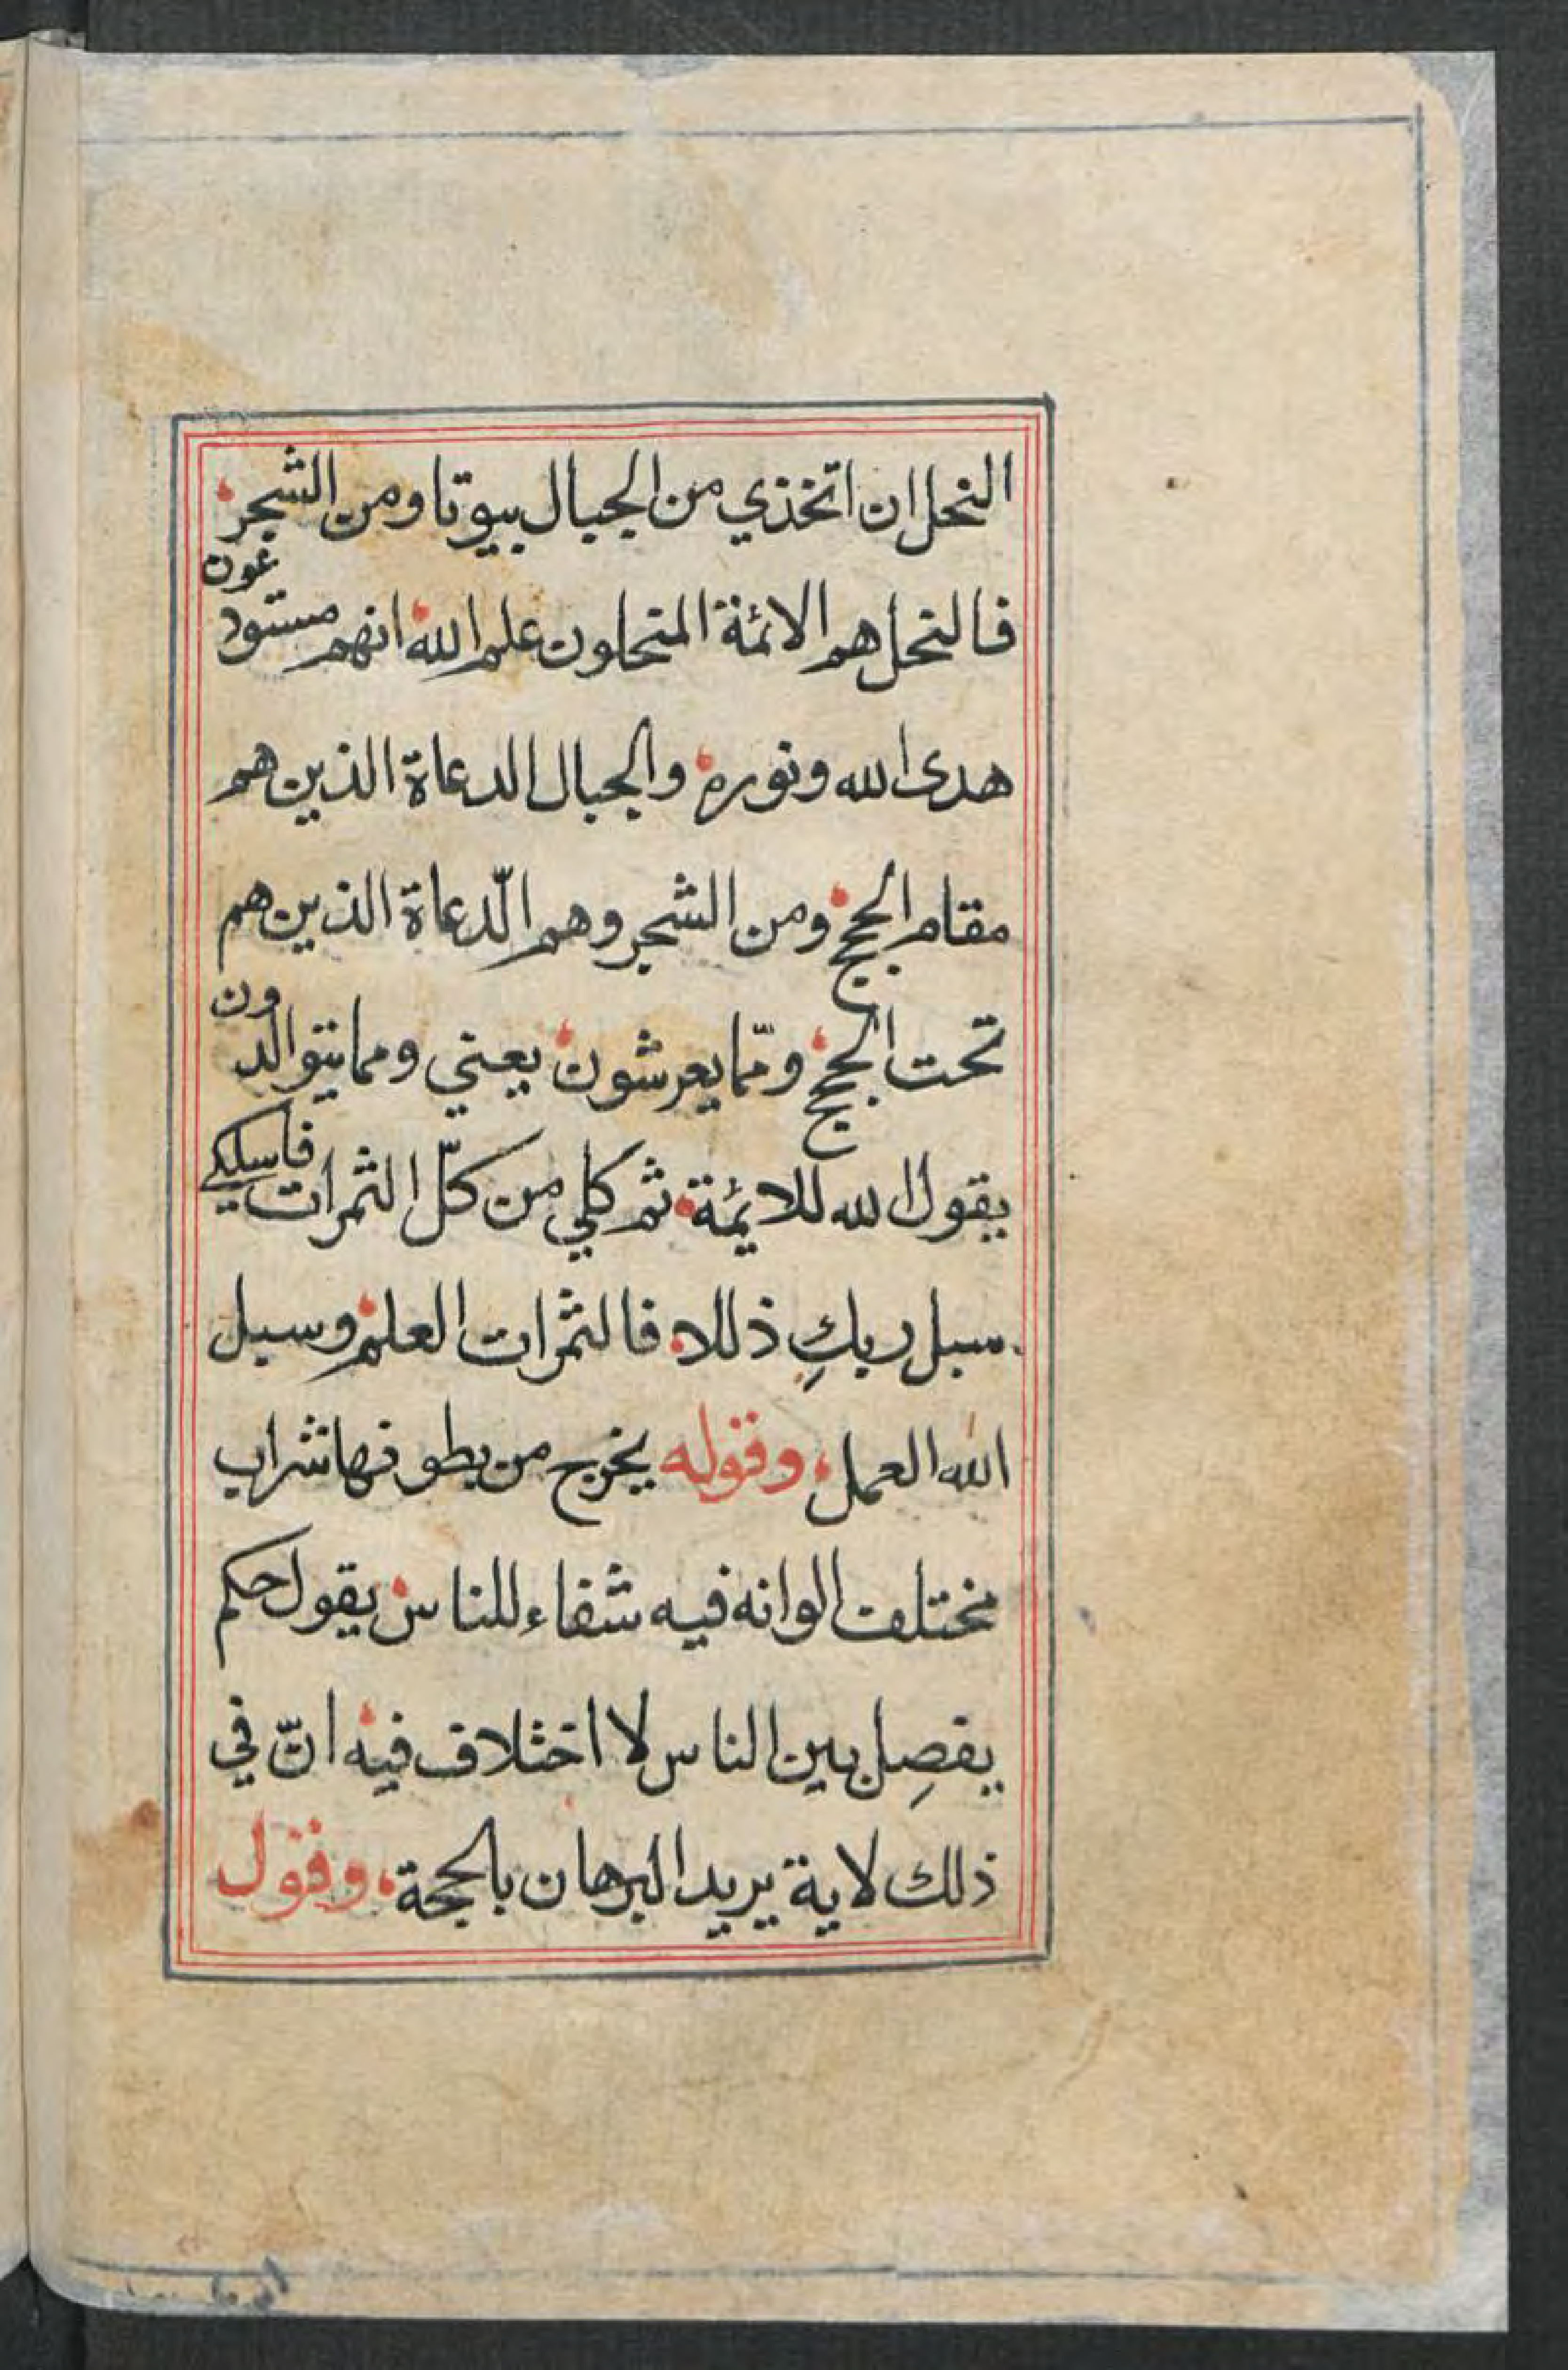 النحل ان اتخذي من الجبال بيوتا ومن الشجر
فالنحل هم الائمة المتحلون علم الله انهم مستودعون
هدى الله ونوره والجبال الدعاة الذين هم
مقام الحجج ومن الشجر وهم الدّعاة الذين هم
تحت الحجج وممّا يعرشون يعني ومما يتوالدون
يقول الله للائمة ثم كلي من كلّ الثمرات فاسلكي
سبل ربكِ ذللا فالثمرات العلم وسبل
الله العمل وقوله يخرج من بطونها شراب
مختلف الوانه فيه شفاء للناس يقول حكم
يفصِل بين الناس لا اختلاف فيه انّ في
ذلك لاية يريد البرهان بالحجة وقول